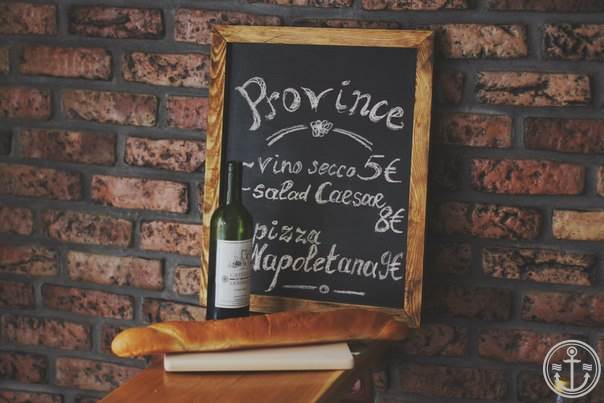 Province
~vino secco 5€
~salad Caesar
8€
pizza
Napoletana 9€